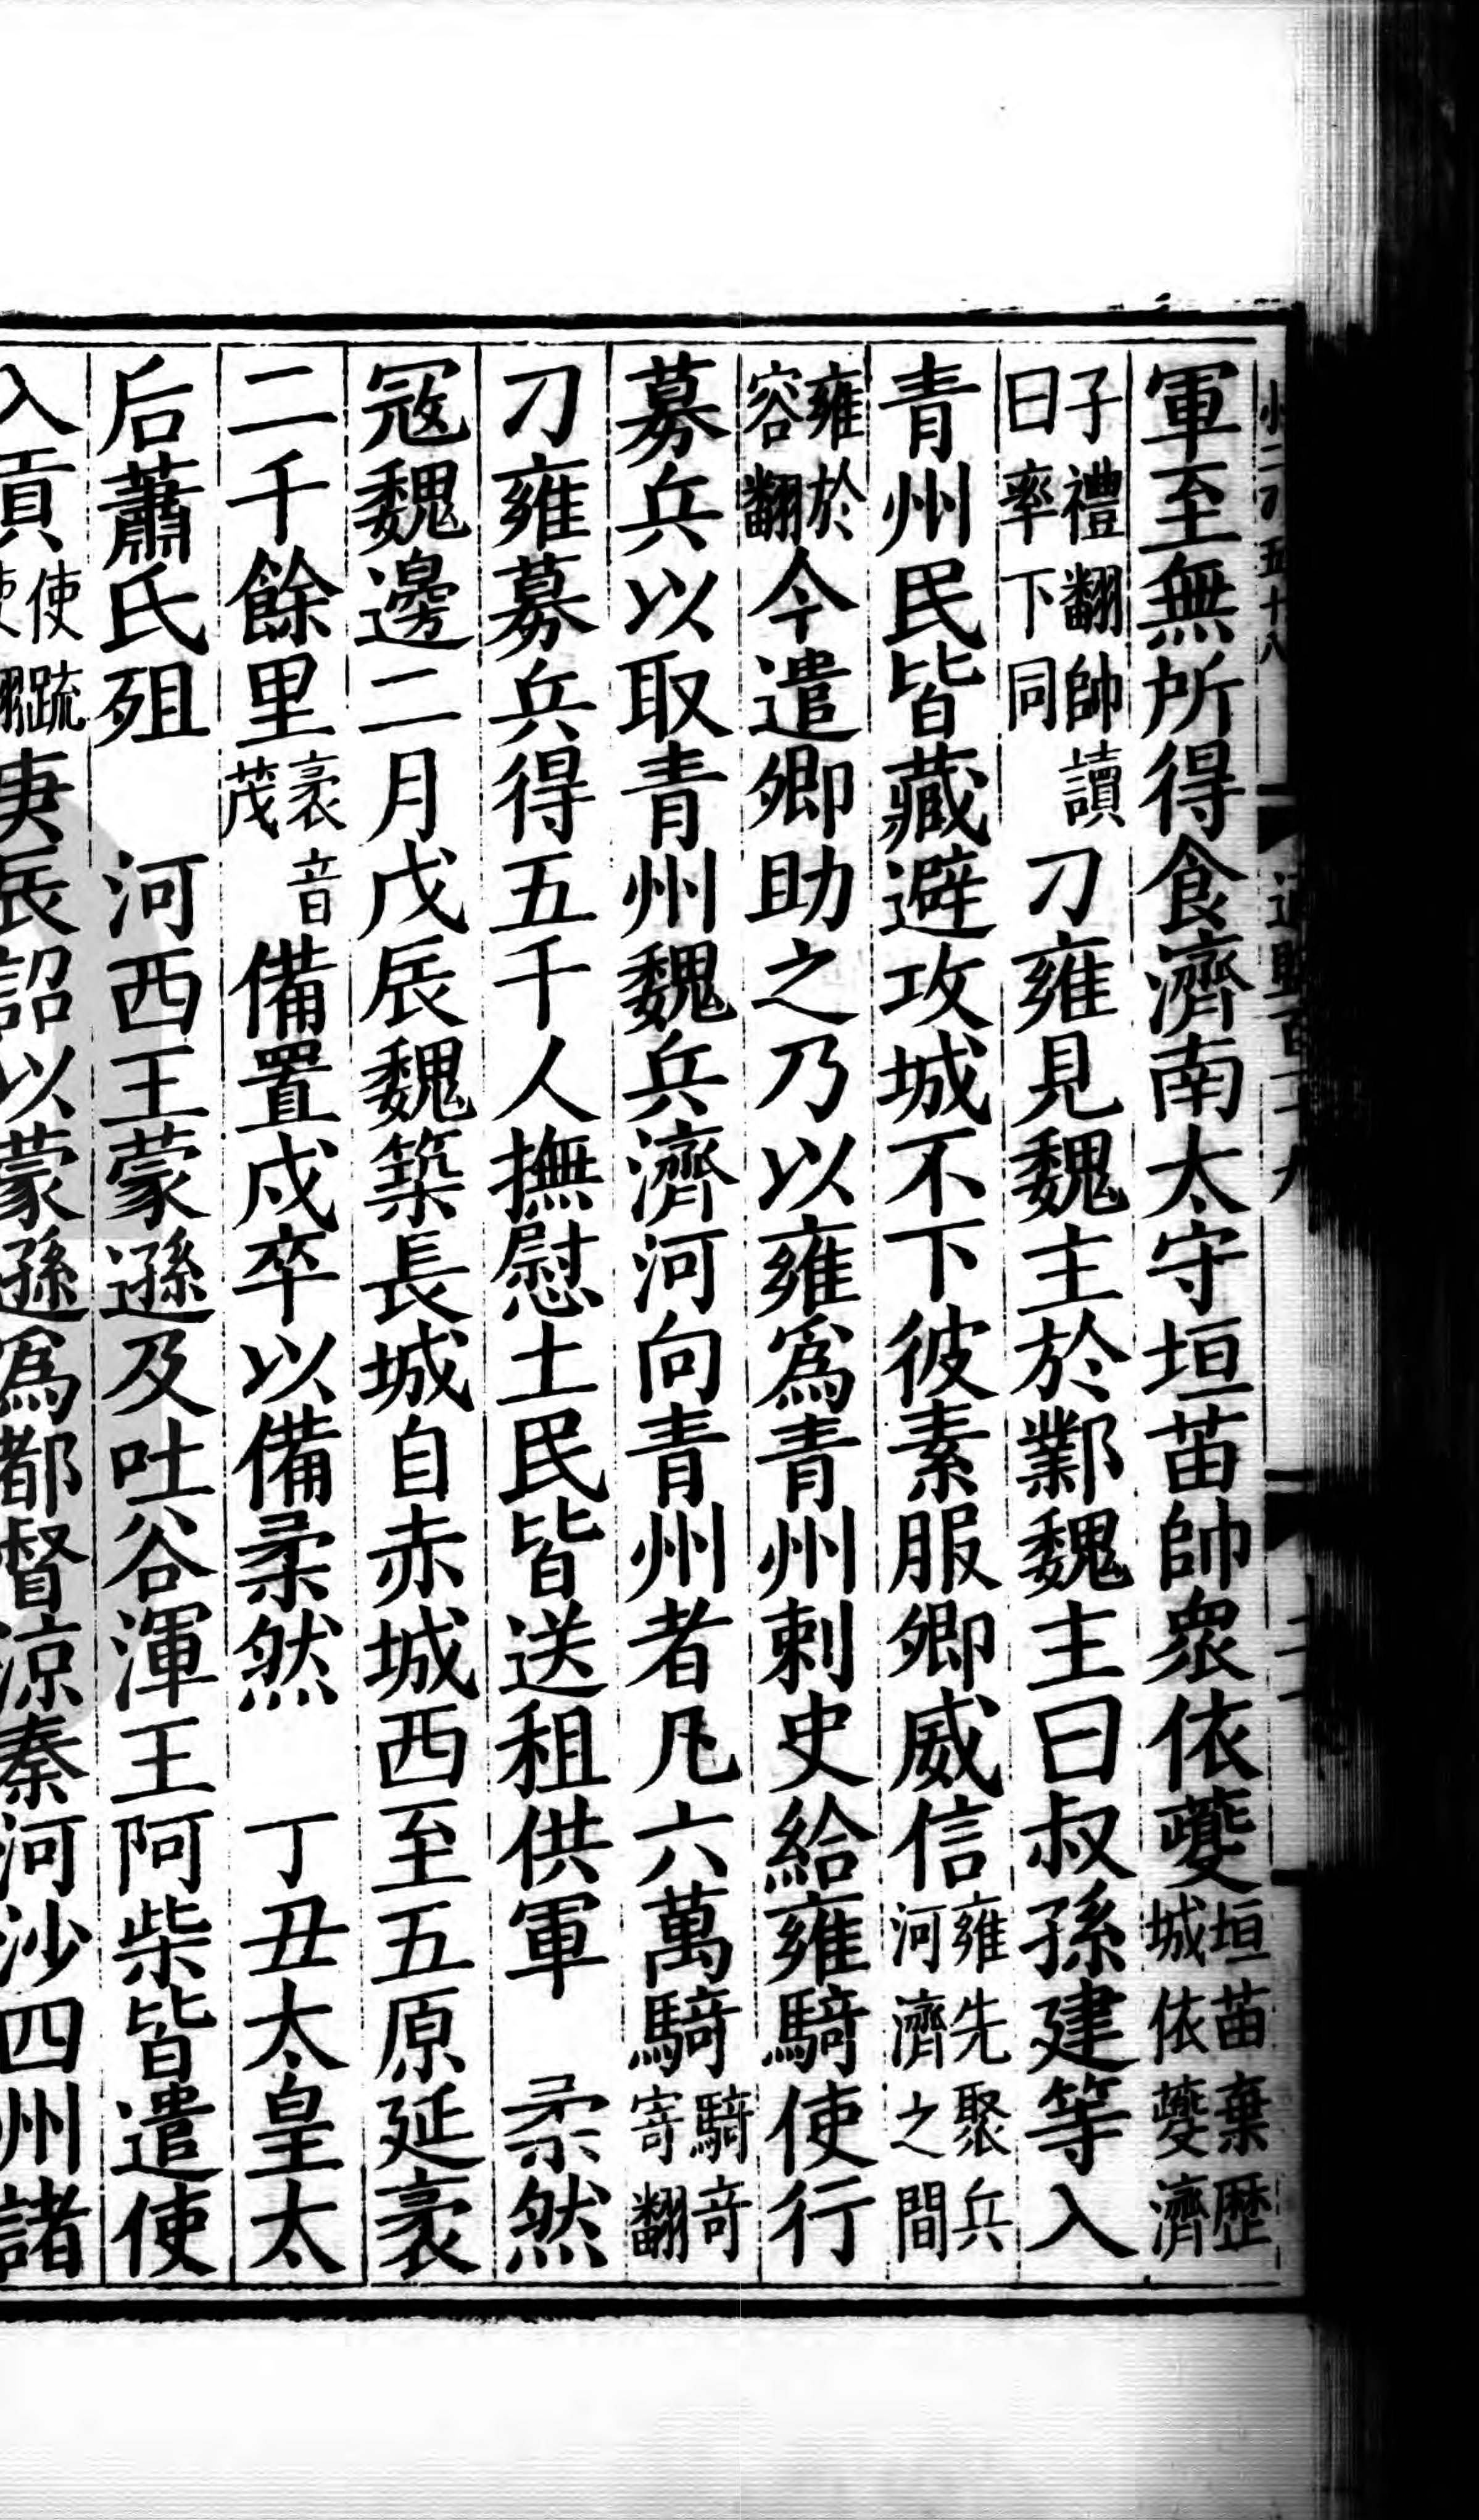 小二百五十八 通鑑百一十九
軍至無所得食濟南太守垣苗帥衆依夔垣苗棄歷城依夔濟
子禮翻帥讀曰率下同刁雍見魏主於鄴魏主曰叔孫建等入
青州民皆藏避攻城不下彼素服卿威信雍先聚兵河濟之間
雍於容翻今遣卿助之乃以雍爲青州刺史給雍騎使行
募兵以取青州魏兵濟河向青州者凡六萬騎騎奇寄翻
刁雍募兵得五千人撫慰士民皆送租供軍 柔然
寇魏邊二月戊辰魏築長城自赤城西至五原延袤
二千餘里袤音茂備置戍卒以備柔然 丁丑太皇太
后蕭氏殂 河西王蒙遜及吐谷渾王阿柴皆遣使
入貢使疏吏翻庚辰詔以蒙遜爲都督涼秦河沙四州諸